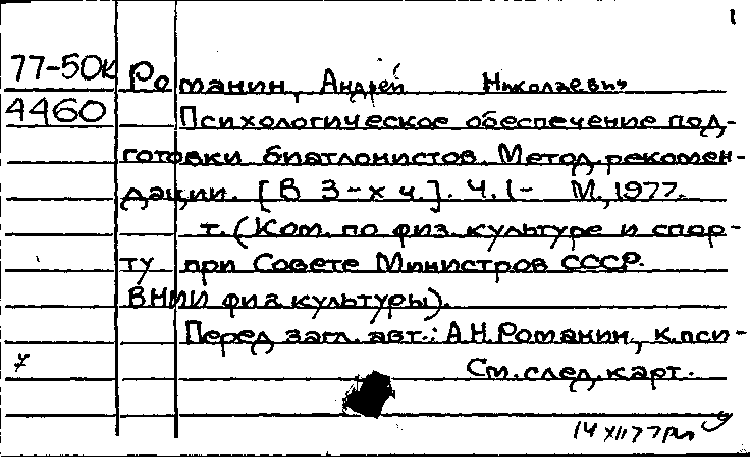 1
77-50к Романин, Андрей Николаевич
4460 Психологическое обеспечение под-
готовки биатлонистов. Метод. рекомен-
дации. [В 3-х ч.]. Ч. 1- М., 1977.
т. (Ком. по физ. культуре и спор-
ту при Совете Министров СССР.
ВНИИ физ. культуры).
Перед загл. авт.: А.Н. Романин, к. пси-
7 См. след. карт.
14 XII 77